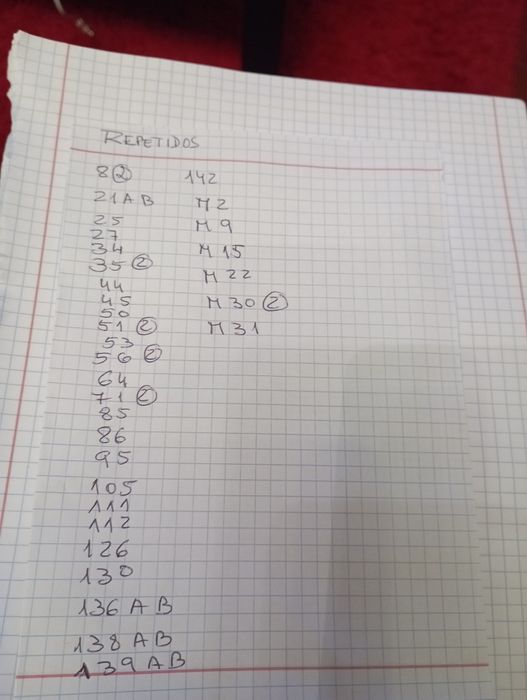 REPETIDOS
8 ②
21 A B
25
27
34
35 ②
44
45
50
51 ②
53
56 ②
64
71 ②
85
86
95
105
111
112
126
130
136 A B
138 A B
139 A B
142
M 2
M 9
M 15
M 22
M 30 ②
M 31